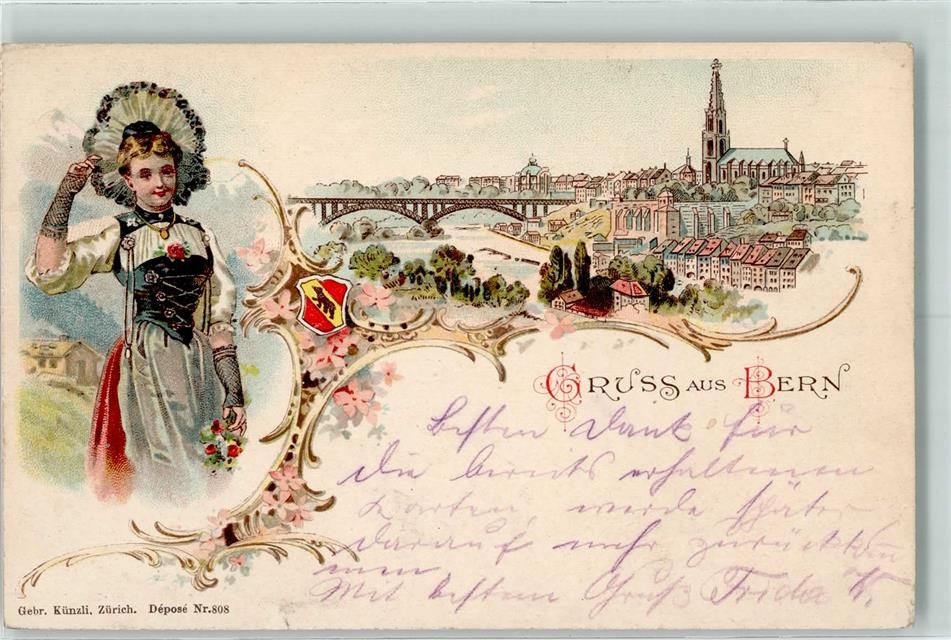 GRUSS AUS BERN
Besten Dank für
die bereits erhaltenen
Karten, werde später
darauf mehr zurückkom
men
Mit bestem Gruß Frida W.
Gebr. Künzli, Zürich. Déposé Nr. 808